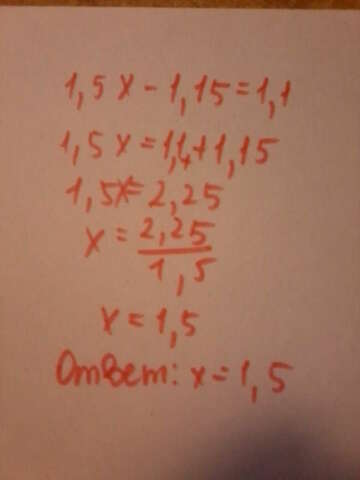 1,5 x - 1,15 = 1,1
1,5 x = 1,1 + 1,15
1,5x = 2,25
x = 2,25 / 1,5
x = 1,5
Ответ: x = 1,5